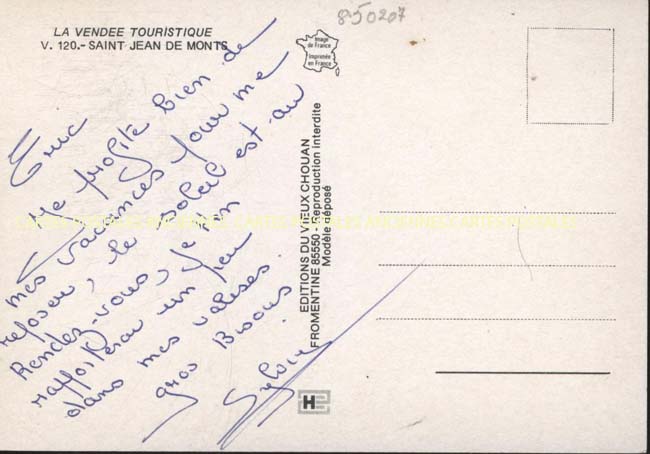 LA VENDEE TOURISTIQUE
V. 120.- SAINT JEAN DE MONTS
850207
Image
de France
Imprimée
en France
Eric
Je profite bien de
mes vacances pour me
reposer, le soleil est au
Rendez-vous, je t'en
rapporterai un peu
dans mes valises.
gros Bisous
Sylvie
EDITIONS DU VIEUX CHOUAN
FROMENTINE 85550 - Reproduction interdite
Modèle déposé